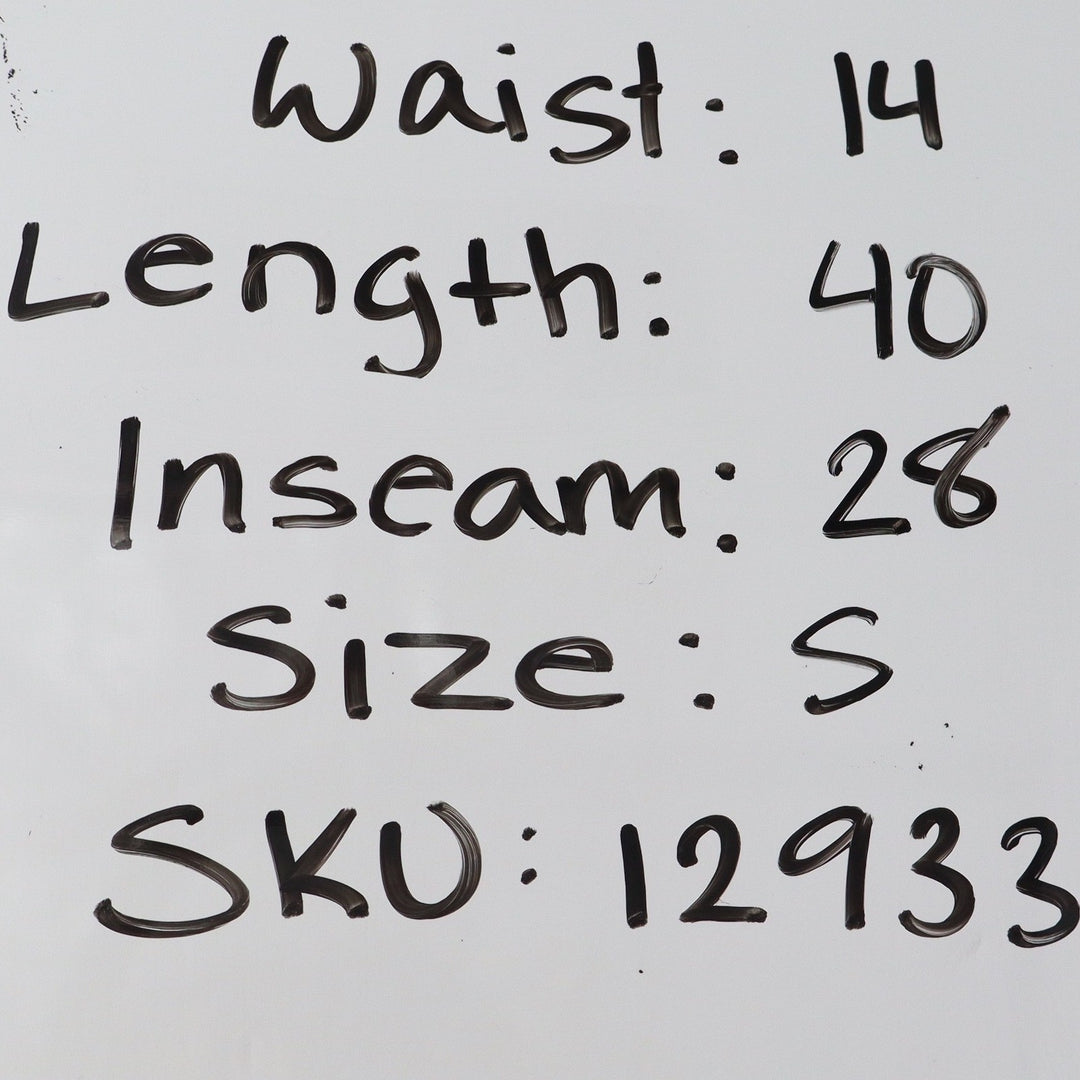 Waist: 14
Length: 40
Inseam: 28
Size: S
SKU: 12933